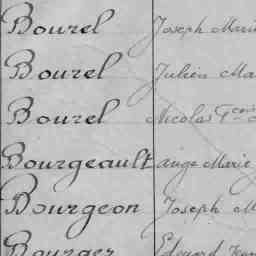 Bourel Joseph Marie
Bourel Julien Ma
Bourel Nicolas Fçois
Bourgeault Ange Marie
Bourgeon Joseph M
Bourger Edouard